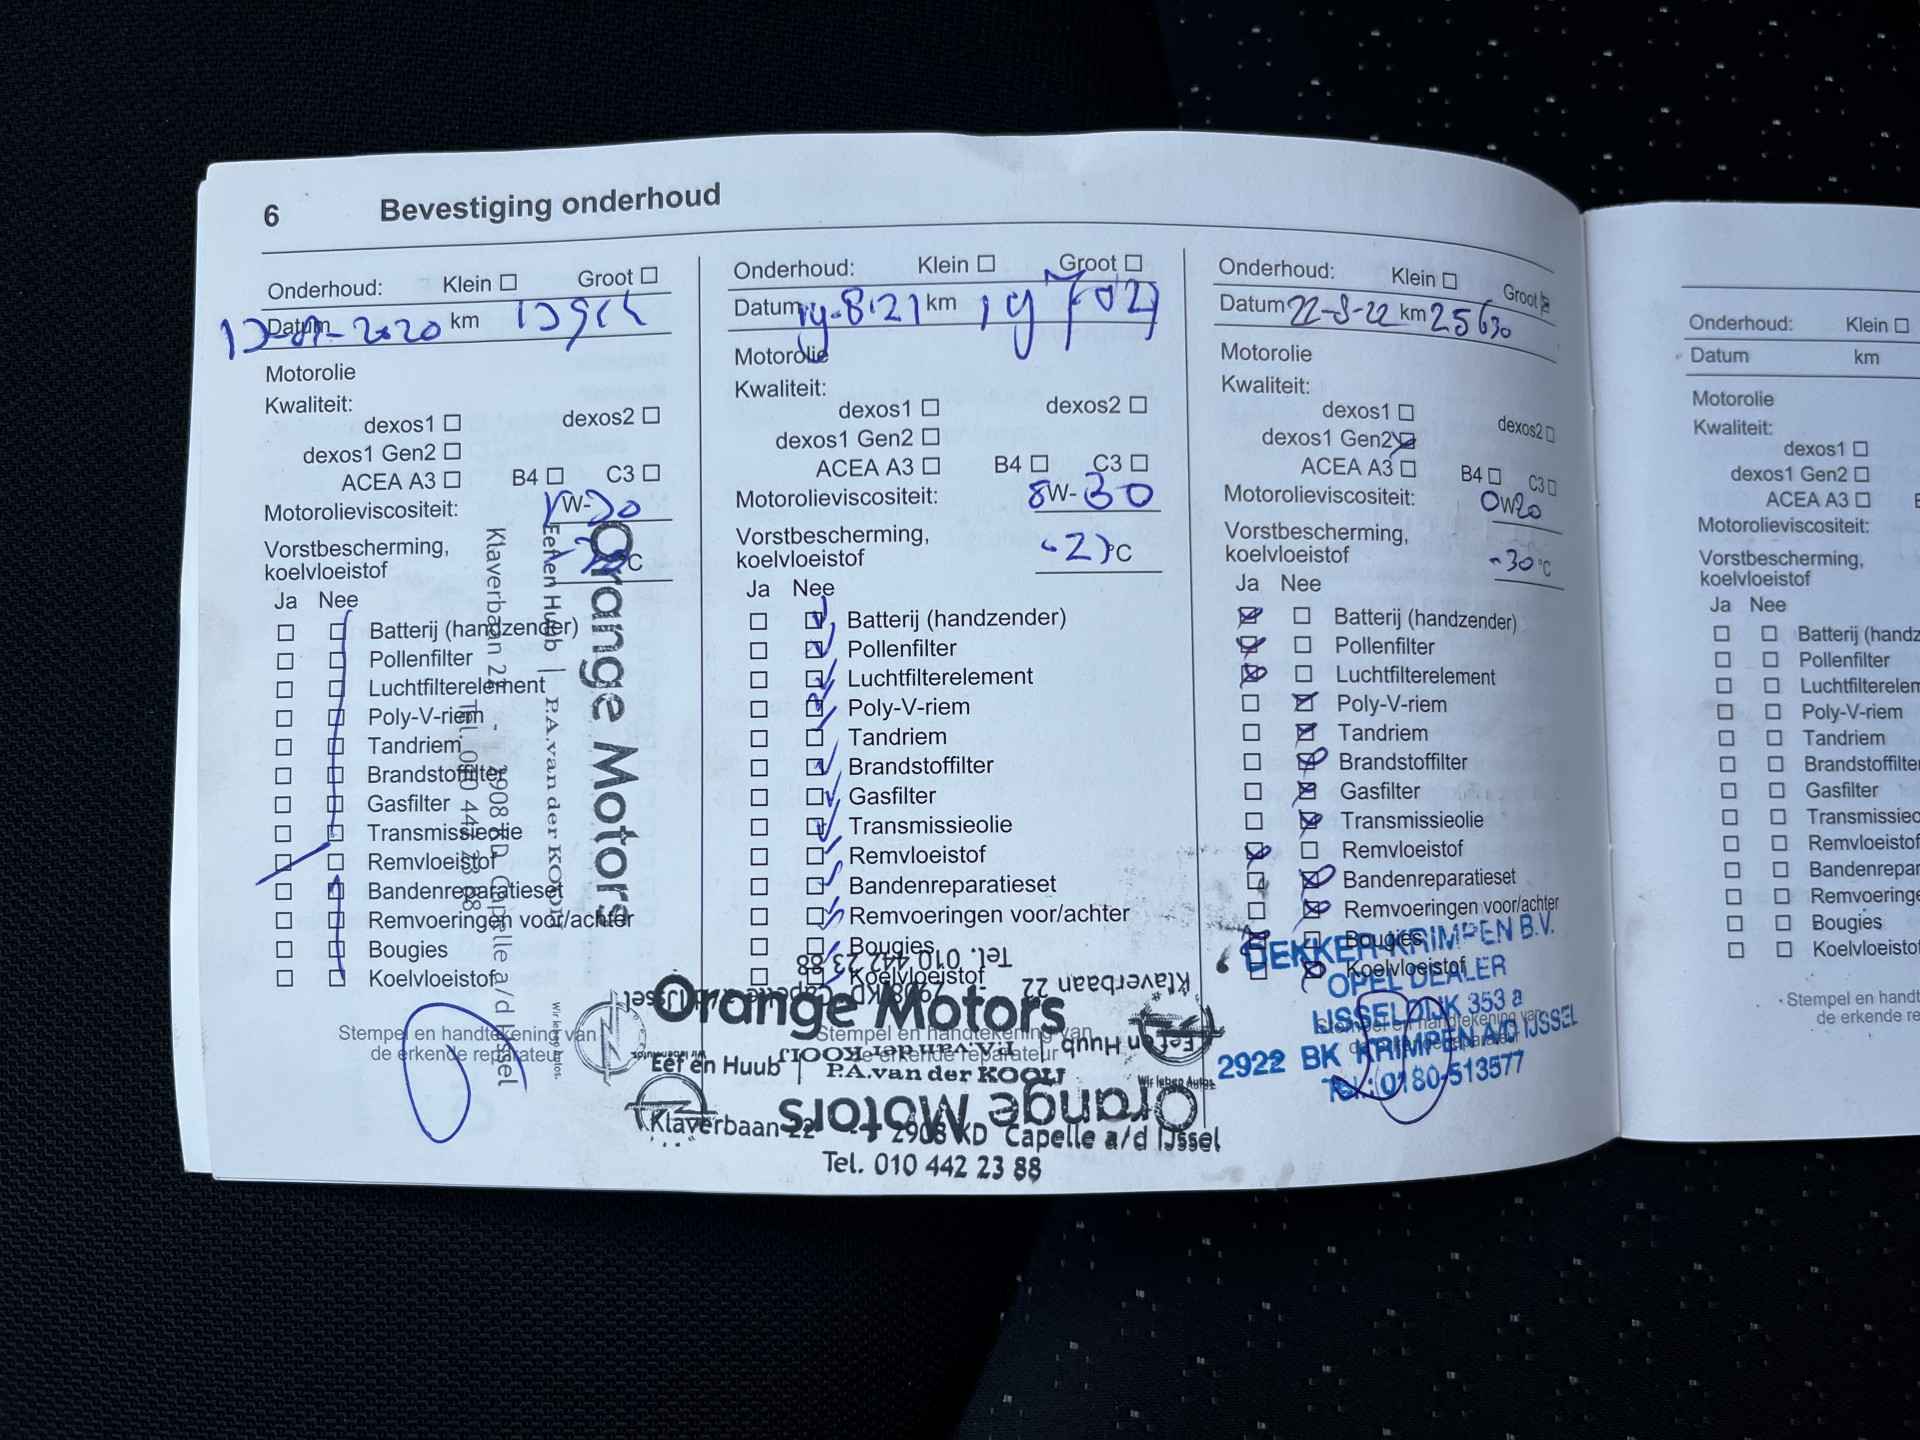 6 Bevestiging onderhoud
Onderhoud: Klein Groot
Datum 2020 km
Motorolie
Kwaliteit:
dexos1 dexos2
dexos1 Gen2
ACEA A3 B4 C3
Motorolieviscositeit: W-
Vorstbescherming,
koelvloeistof °C
Ja Nee
Batterij (handzender)
Pollenfilter
Luchtfilterelement
Poly-V-riem
Tandriem
Brandstoffilter
Gasfilter
Transmissieolie
Remvloeistof
Bandenreparatieset
Remvoeringen voor/achter
Bougies
Koelvloeistof
Stempel en handtekening van
de erkende reparateur
Orange Motors
Eef en Huub | P.A.van der KOOIJ
Klaverbaan 22 - 2908 KD Capelle a/d IJssel
Tel. 010 442 23 88
Wir leben Autos.
Onderhoud: Klein Groot
Datum 19-8-21 km
Motorolie
Kwaliteit:
dexos1 dexos2
dexos1 Gen2
ACEA A3 B4 C3
Motorolieviscositeit: W-30
Vorstbescherming,
koelvloeistof °C
Ja Nee
Batterij (handzender)
Pollenfilter
Luchtfilterelement
Poly-V-riem
Tandriem
Brandstoffilter
Gasfilter
Transmissieolie
Remvloeistof
Bandenreparatieset
Remvoeringen voor/achter
Bougies
Koelvloeistof
Stempel en handtekening van
de erkende reparateur
Orange Motors
Eef en Huub | P.A.van der KOOIJ
Klaverbaan 22 - 2908 KD Capelle a/d IJssel
Tel. 010 442 23 88
Wir leben Autos.
Orange Motors
Eef en Huub | P.A.van der KOOIJ
Klaverbaan 22 - 2908 KD Capelle a/d IJssel
Tel. 010 442 23 88
Wir leben Autos.
Onderhoud: Klein Groot
Datum 22-8-22 km 25630
Motorolie
Kwaliteit:
dexos1 dexos2
dexos1 Gen2
ACEA A3 B4 C3
Motorolieviscositeit: 0W20
Vorstbescherming,
koelvloeistof -30 °C
Ja Nee
Batterij (handzender)
Pollenfilter
Luchtfilterelement
Poly-V-riem
Tandriem
Brandstoffilter
Gasfilter
Transmissieolie
Remvloeistof
Bandenreparatieset
Remvoeringen voor/achter
Bougies
Koelvloeistof
Stempel en handtekening van
DEKKER KRIMPEN B.V.
OPEL DEALER
IJSSELDIJK 353 a
2922 BK KRIMPEN A/D IJSSEL
Tel.: 0180-513577
Onderhoud: Klein
Datum km
Motorolie
Kwaliteit:
dexos1
dexos1 Gen2
ACEA A3
Motorolieviscositeit:
Vorstbescherming,
koelvloeistof
Ja Nee
Batterij (handz
Pollenfilter
Luchtfilterelem
Poly-V-riem
Tandriem
Brandstoffilte
Gasfilter
Transmissieo
Remvloeistof
Bandenrepar
Remvoeringe
Bougies
Koelvloeisto
Stempel en handt
de erkende re